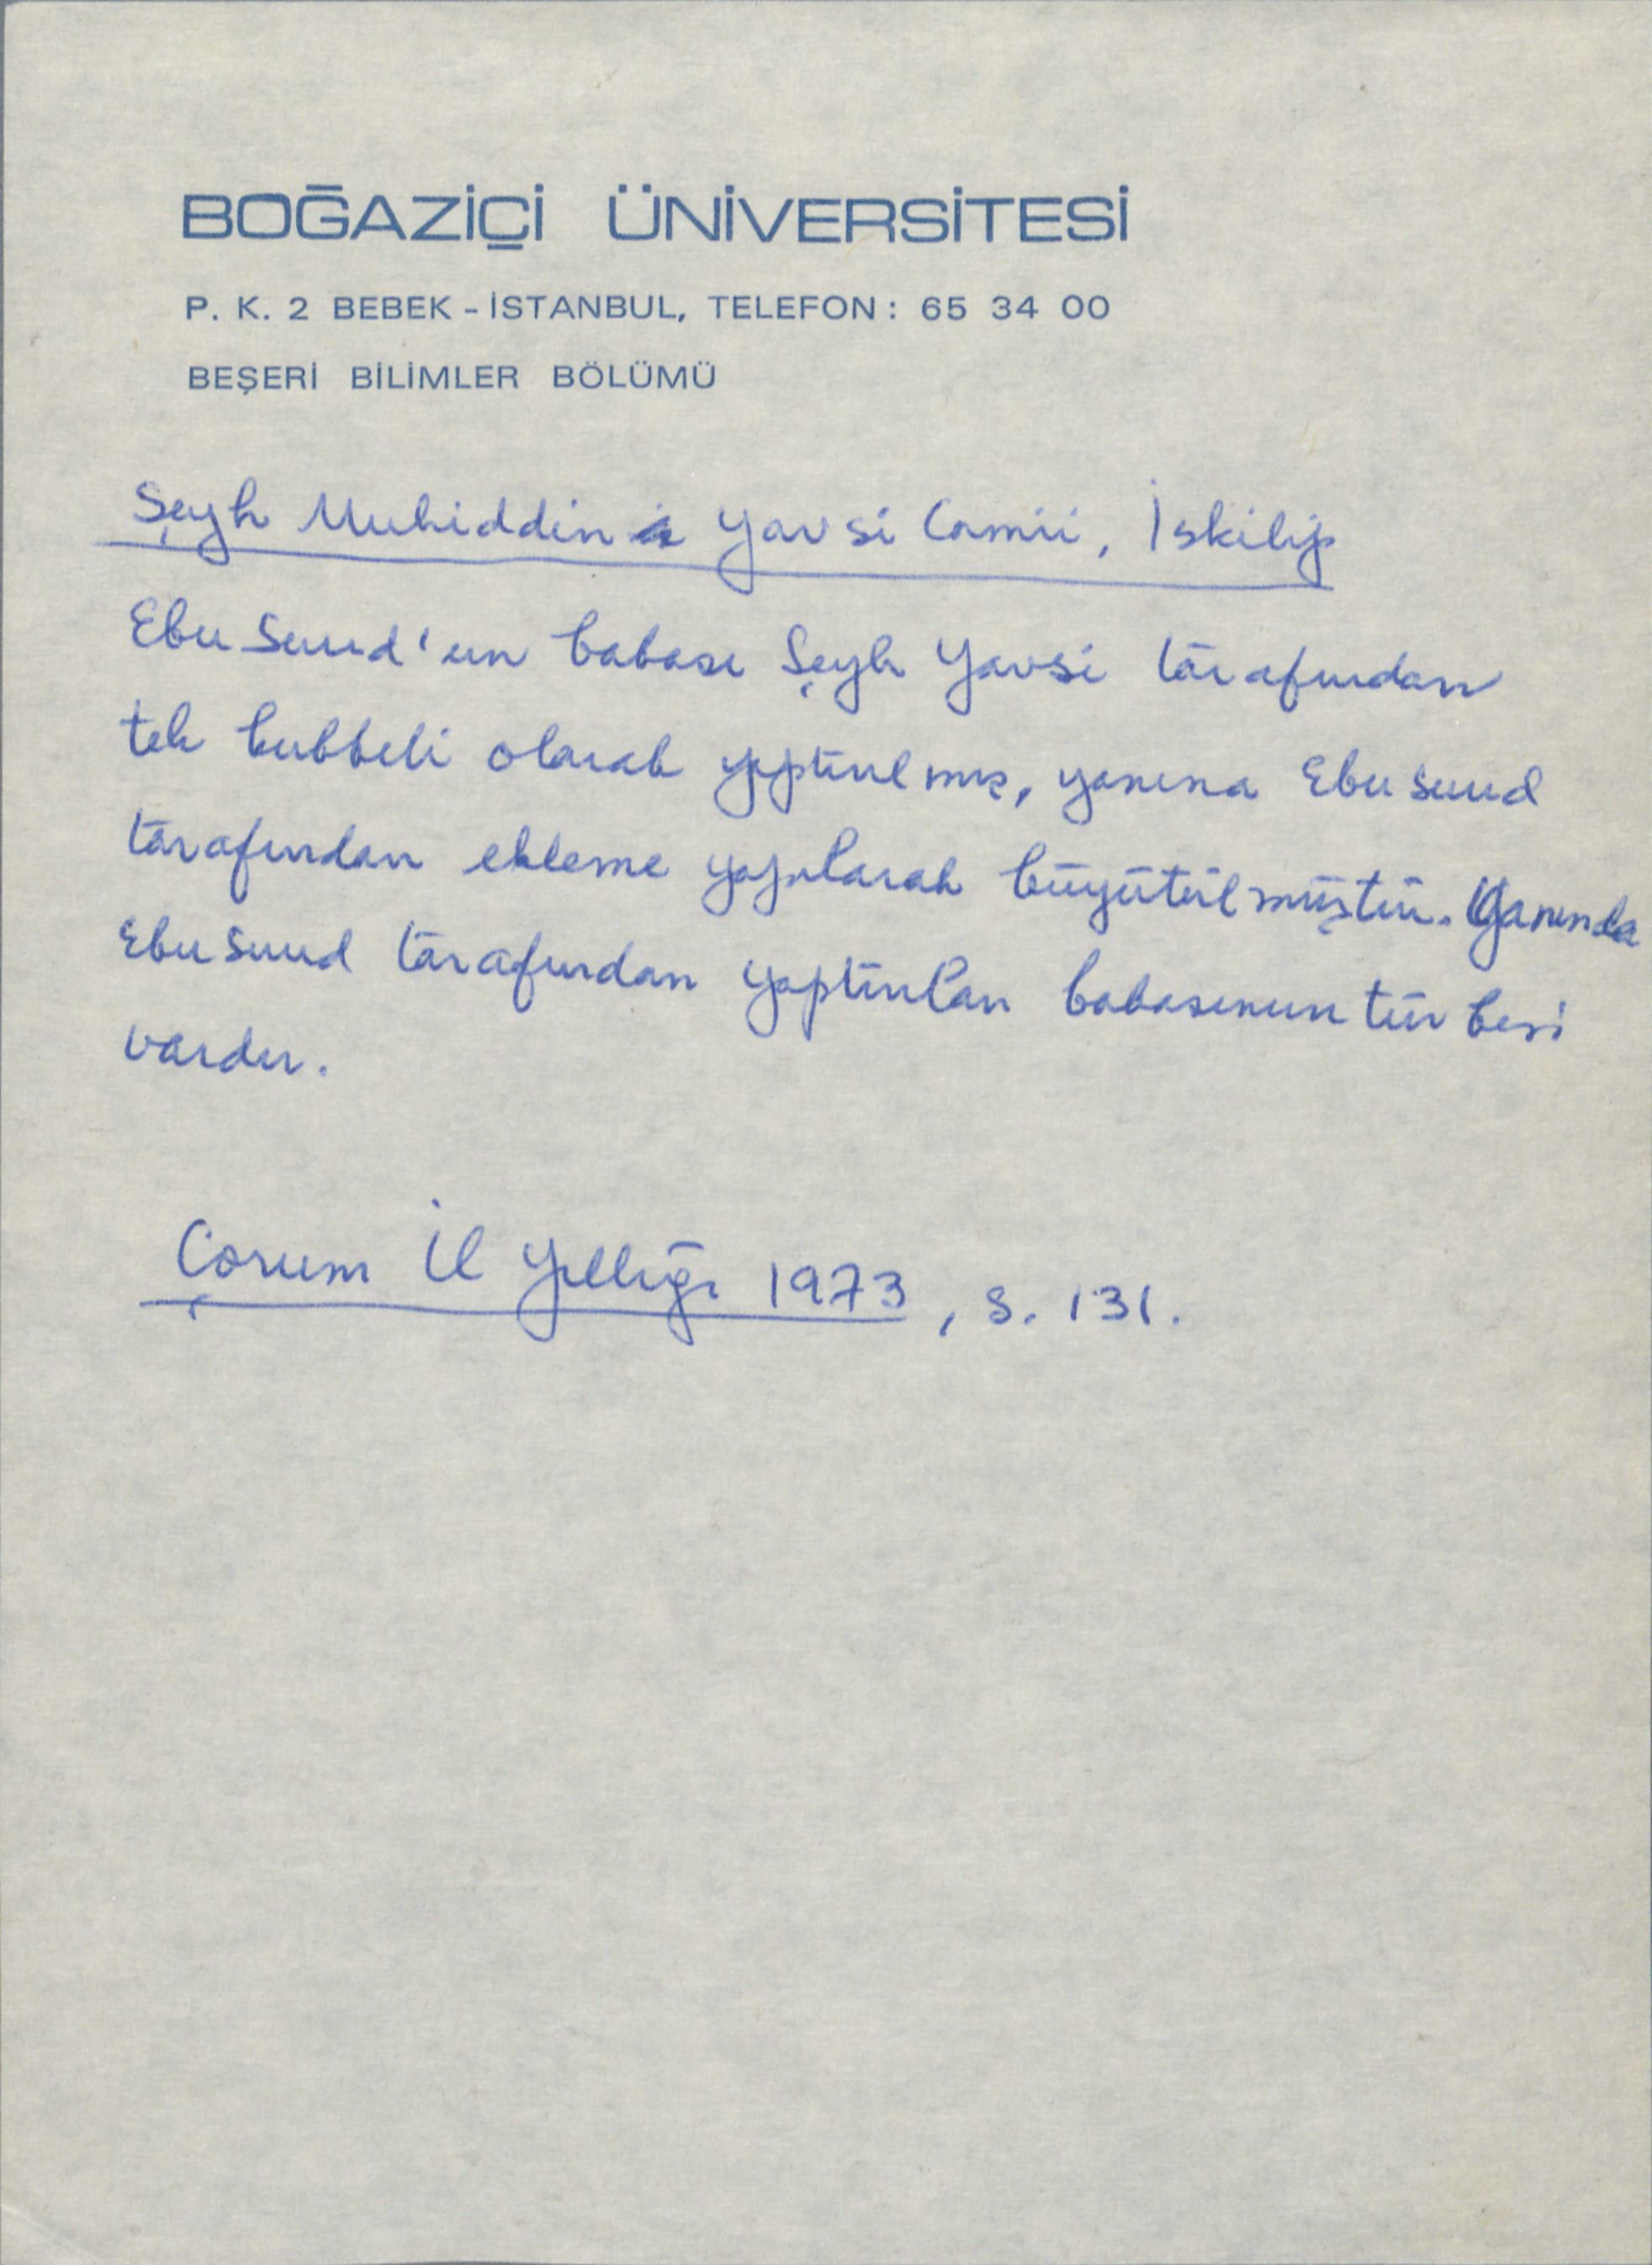 BOĞAZİÇİ ÜNİVERSİTESİ
P. K. 2 BEBEK - İSTANBUL, TELEFON : 65 34 00
BEŞERİ BİLİMLER BÖLÜMÜ
Şeyh Muhiddin Yavsi Camii, İskilip
Ebu Suud'un babası Şeyh Yavsi tarafından
tek kubbeli olarak yaptırılmış, yanına Ebu Suud
tarafından ekleme yapılarak büyütülmüştür. Yanında
Ebu Suud tarafından yaptırılan babasının türbesi
vardır.
Çorum İl Yıllığı 1973, s. 131.